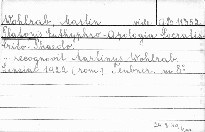 Wohlrab, Martin vide
Platonis Euthyphro. Apologia Socratis.
Crito. Phaedo.
recognovit Martinus Wohlrab
Lipsiae 1922 (rom.) Teubner. 8°